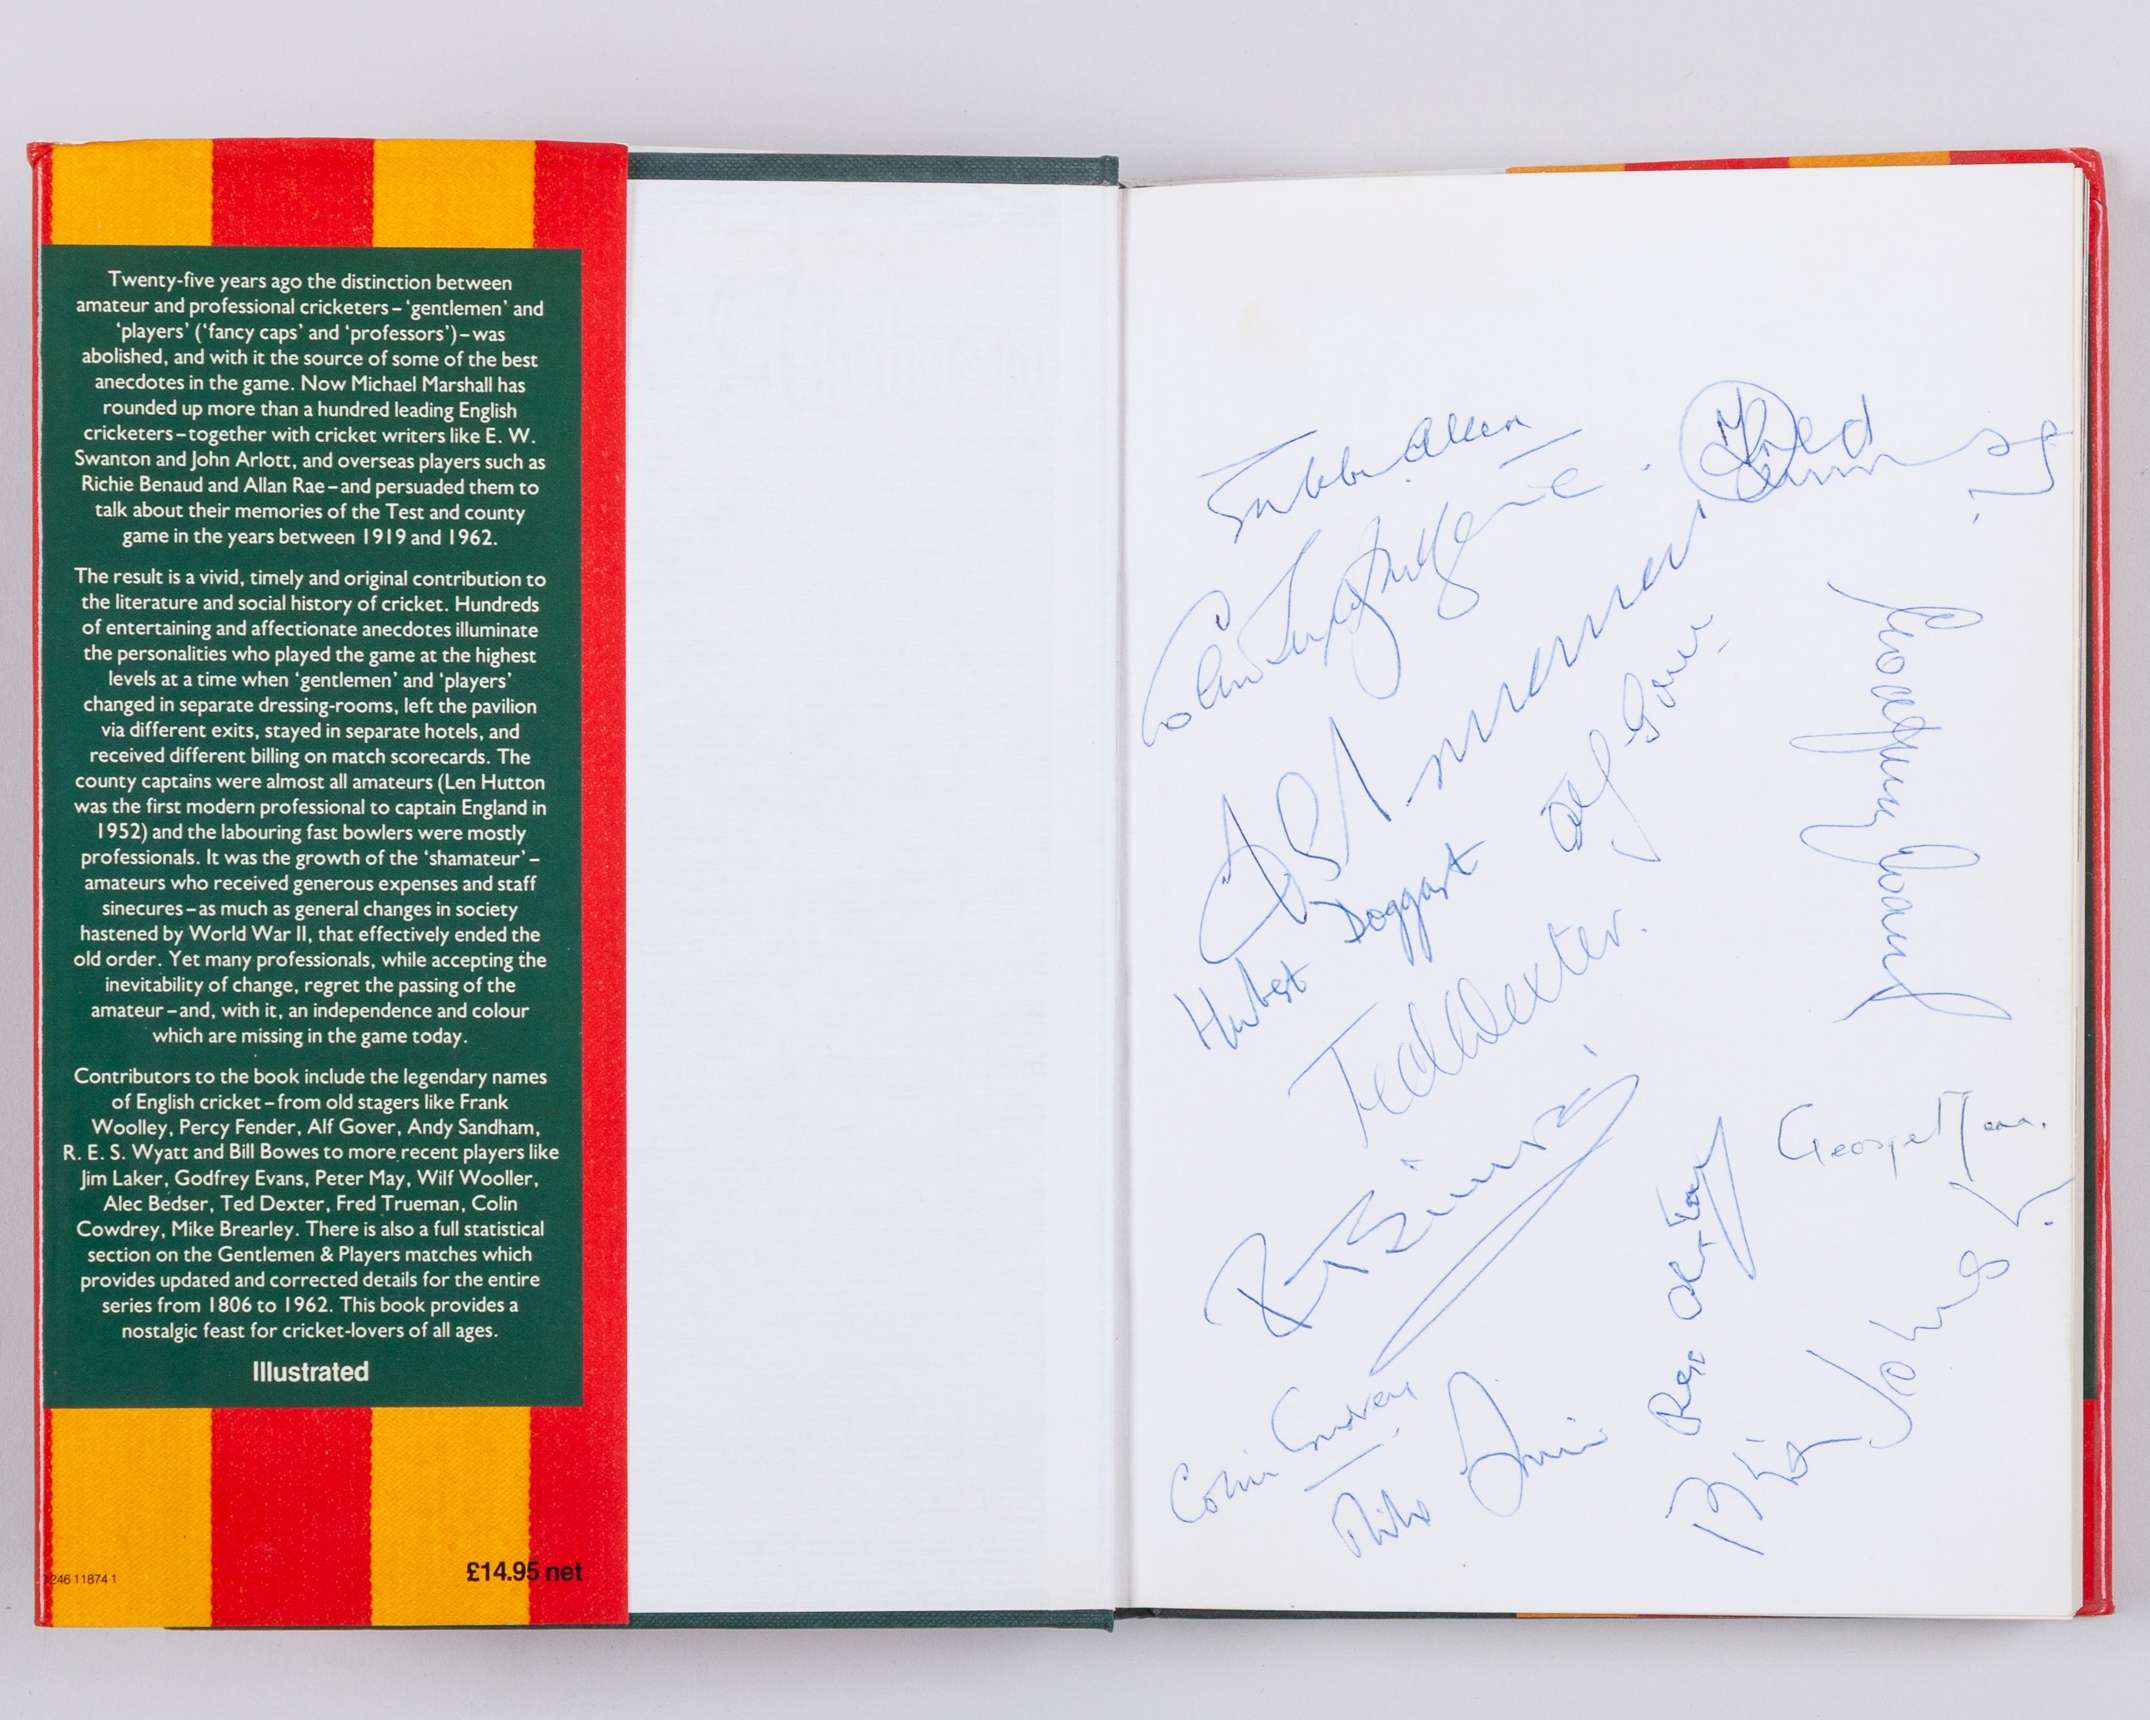 Twenty-five years ago the distinction between
amateur and professional cricketers – ‘gentlemen’ and
‘players’ (‘fancy caps’ and ‘professors’) – was
abolished, and with it the source of some of the best
anecdotes in the game. Now Michael Marshall has
rounded up more than a hundred leading English
cricketers – together with cricket writers like E. W.
Swanton and John Arlott, and overseas players such as
Richie Benaud and Allan Rae – and persuaded them to
talk about their memories of the Test and county
game in the years between 1919 and 1962.
The result is a vivid, timely and original contribution to
the literature and social history of cricket. Hundreds
of entertaining and affectionate anecdotes illuminate
the personalities who played the game at the highest
levels at a time when ‘gentlemen’ and ‘players’
changed in separate dressing-rooms, left the pavilion
via different exits, stayed in separate hotels, and
received different billing on match scorecards. The
county captains were almost all amateurs (Len Hutton
was the first modern professional to captain England in
1952) and the labouring fast bowlers were mostly
professionals. It was the growth of the ‘shamateur’ –
amateurs who received generous expenses and staff
sinecures – as much as general changes in society
hastened by World War II, that effectively ended the
old order. Yet many professionals, while accepting the
inevitability of change, regret the passing of the
amateur – and, with it, an independence and colour
which are missing in the game today.
Contributors to the book include the legendary names
of English cricket – from old stagers like Frank
Woolley, Percy Fender, Alf Gover, Andy Sandham,
R. E. S. Wyatt and Bill Bowes to more recent players like
Jim Laker, Godfrey Evans, Peter May, Wilf Wooller,
Alec Bedser, Ted Dexter, Fred Trueman, Colin
Cowdrey, Mike Brearley. There is also a full statistical
section on the Gentlemen & Players matches which
provides updated and corrected details for the entire
series from 1806 to 1962. This book provides a
nostalgic feast for cricket-lovers of all ages.
Illustrated
£14.95 net
246 11874 1
Gubby Allen
Colin Ingleby-Mackenzie
Alf Gover
Hubert Doggart
Ted Dexter.
Godfrey Evans
George Mann.
R T Simpson
Colin Cowdrey
Phil Sharpe